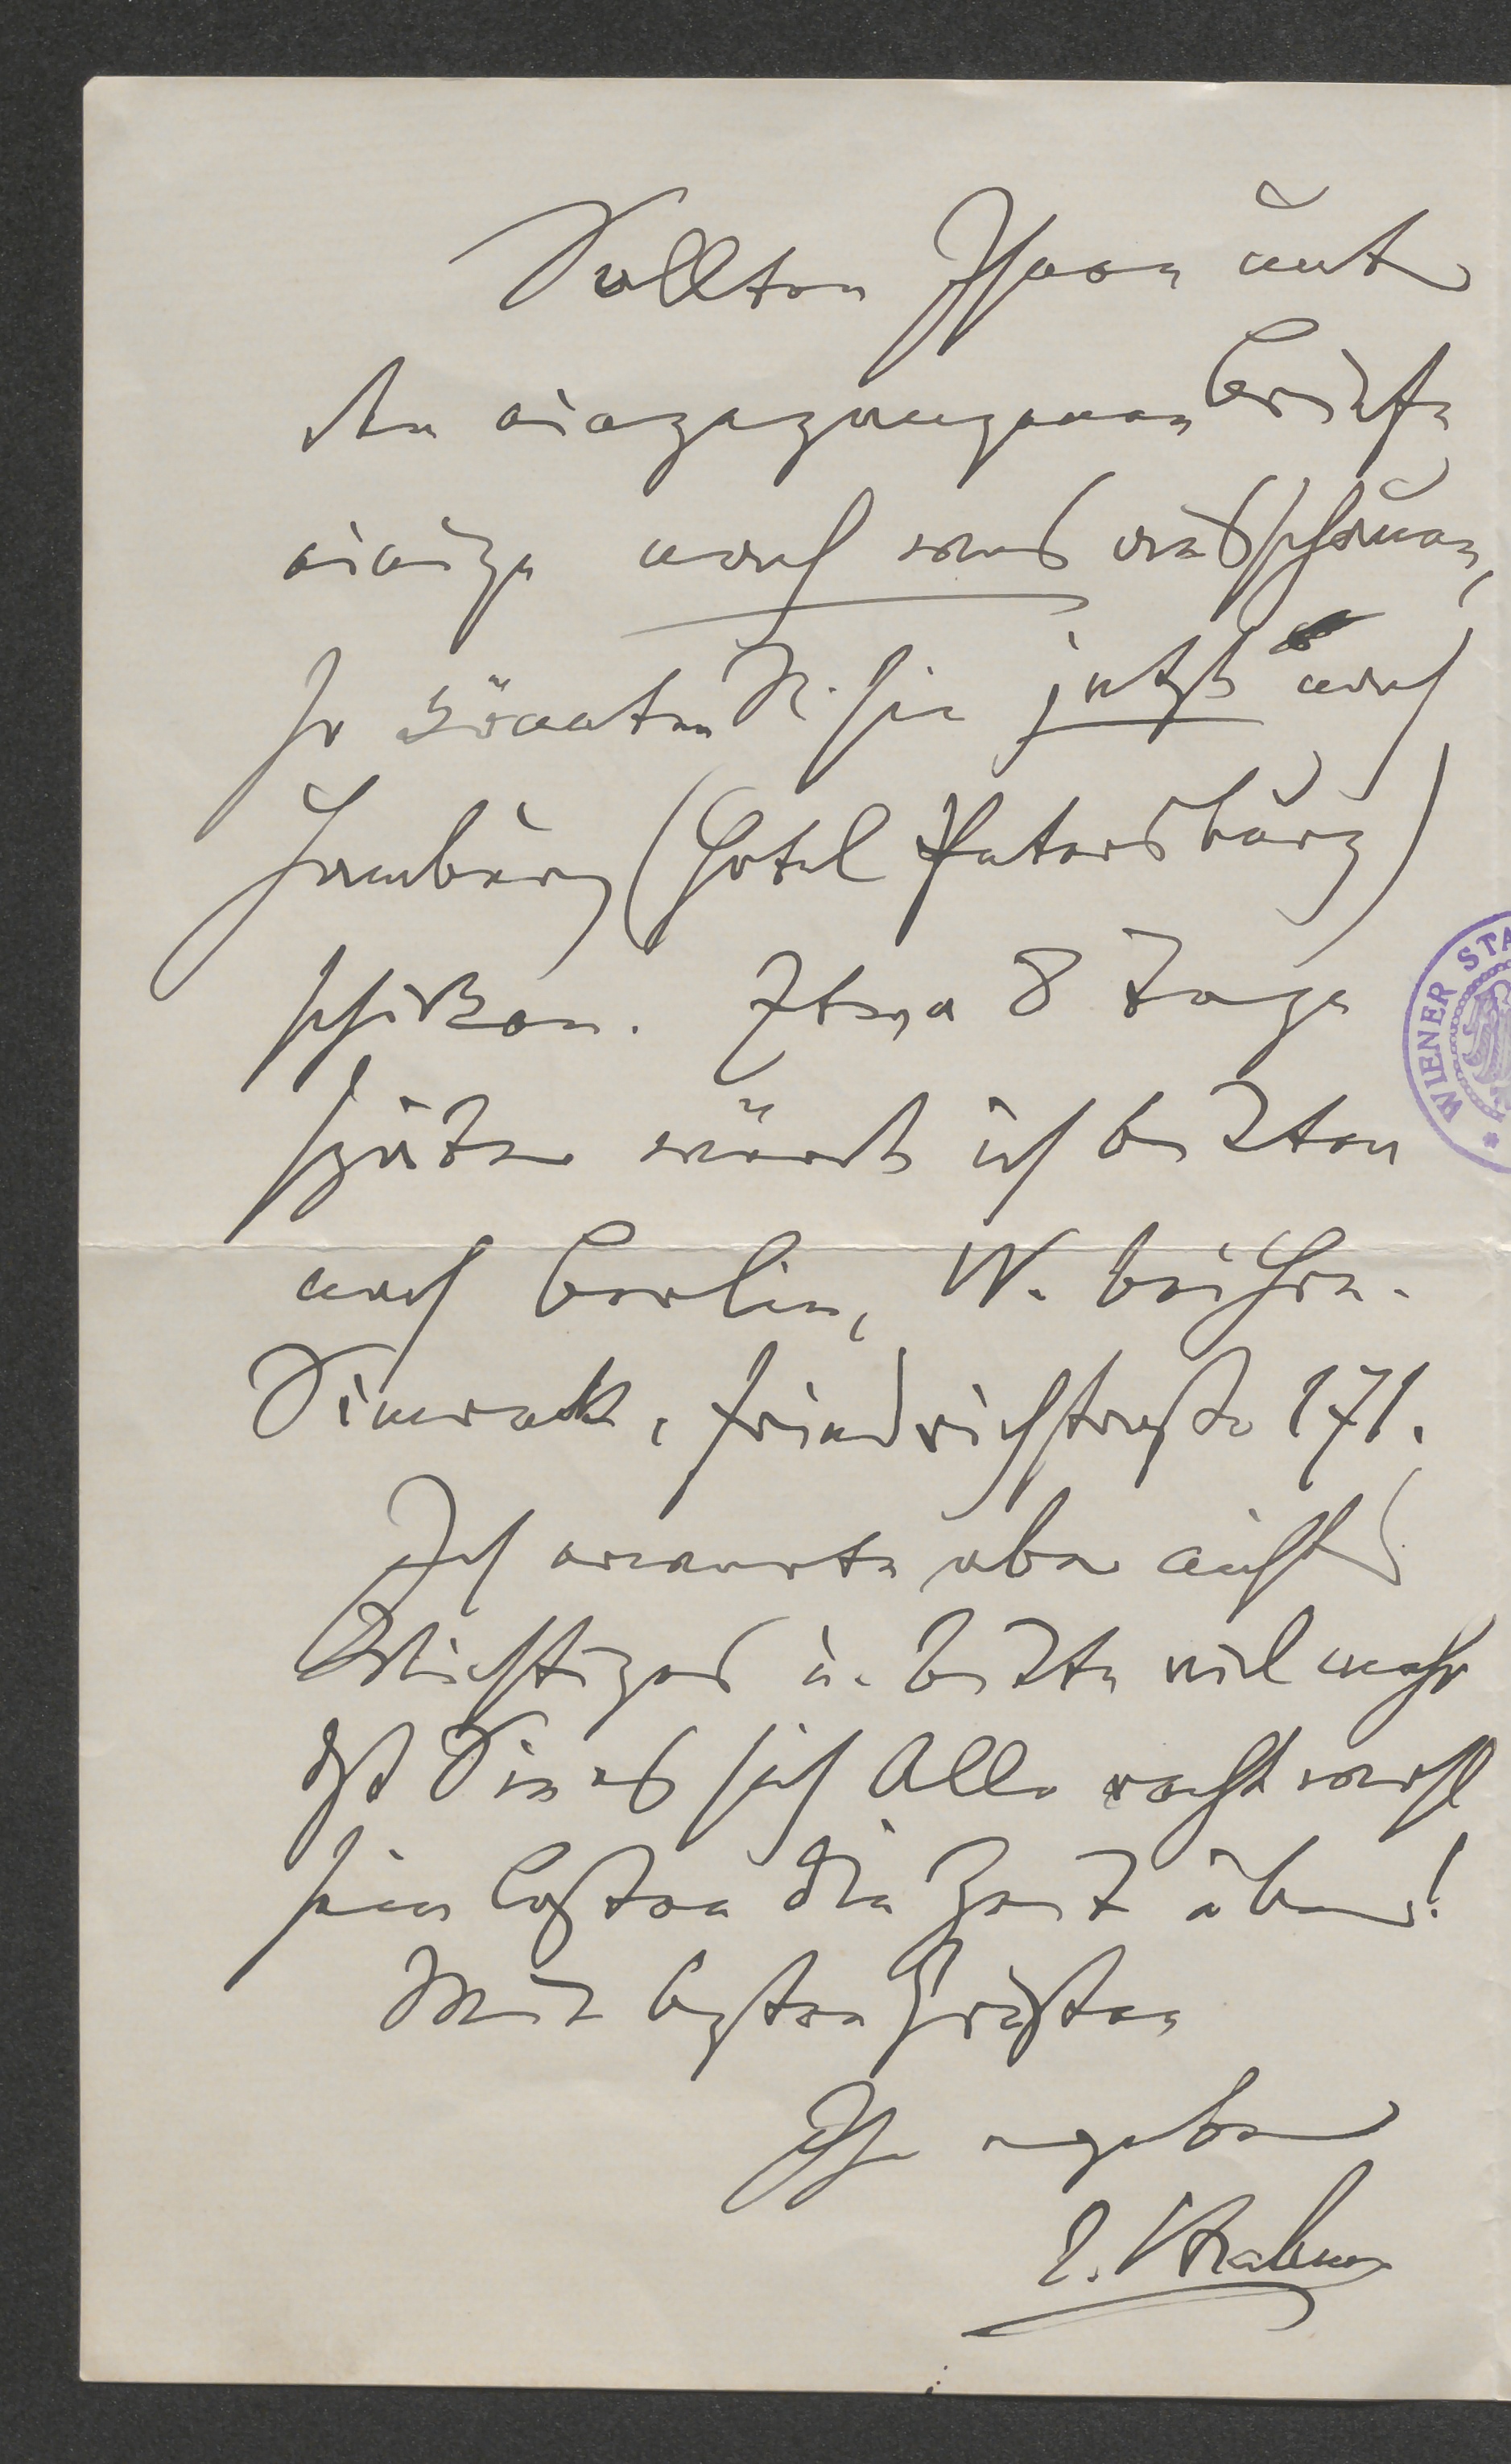 Sollten Ihnen unter
den eingegangenen Briefen
einige nach was aussehen,
so könnten Sie sie jetzt nach
Hamburg (Hotel Petersburg)
schicken. Etwa 8 Tage
später würde ich bitten
nach Berlin, W. bei Hrn.
Simrock, Friedrichstraße 171.
Ich erwarte aber nichts
Wichtiges u. bitte viel mehr
daß Sie es sich Alle recht wohl
sein laßen die Zeit über!
Mit besten Grüßen
Ihr ergebener
J. Brahms
WIENER STA